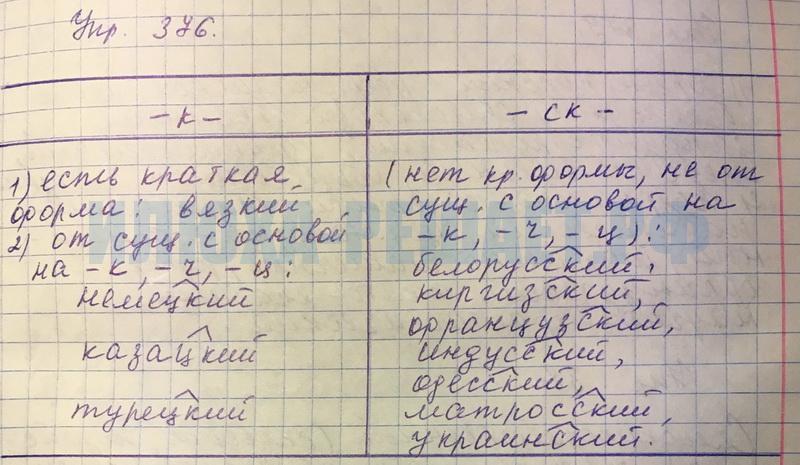 Упр. 376.
-к-
1) есть краткая
форма: вязкий
2) от сущ. с основой
на -к, -ч, -ц:
немецкий
казацкий
турецкий
-ск-
(нет кр. формы, не от
сущ. с основой на
-к, -ч, -ц):
белорусский,
киргизский,
французский,
индусский,
одесский,
матросский,
украинский.